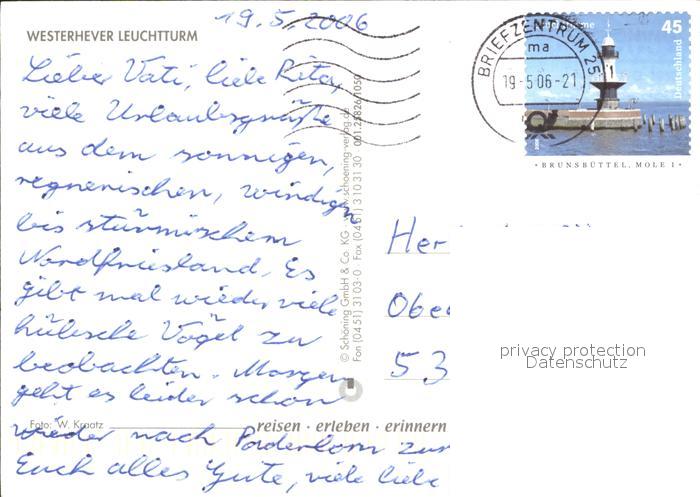 19.5.2006
WESTERHEVER LEUCHTTURM
Lieber Vati, liebe Rita,
viele Urlaubsgrüße
aus dem sonnigen,
regnerischen, windigen
bis stürmischem
Nordfriesland. Es
gibt mal wieder viele
hübsche Vögel zu
beobachten. Morgen
geht es leider schon
wieder nach Paderborn zur
Euch alles Gute, viele liebe
Foto: W. Kraatz
reisen · erleben · erinnern
© Schöning GmbH & Co. KG · www.schoening-verlag.de
Fon (0451) 3103-0 · Fax (0451) 3103130
BRIEFZENTRUM 25
ma
19-5.06-21
45
Deutschland
· BRUNSBÜTTEL, MOLE 1 ·
Her
Obe
53
privacy protection
Datenschutz